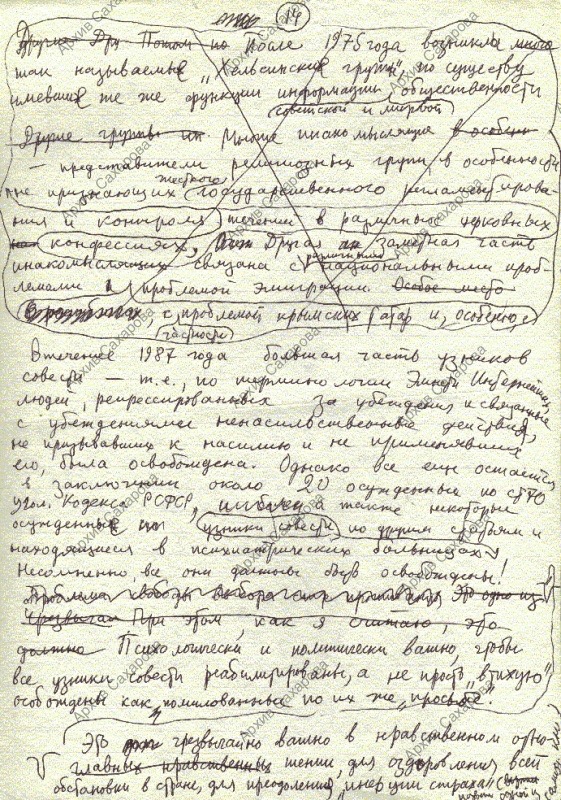 14
После 1975 года возникли много
так называемые „Хельсинские группы" по существу
имевшие же же функции информации общественности
советской и мировой
Другие группы Многие инакомыслящие в особен
— представители религиозных групп, в особенности
не признающих государственного регламентирова-
жесткого
ния и контроля течений в различных церковных
конфессиях, Другая заметная часть
инакомыслящих связана с национальными проб-
различными
лемами и проблемой эмиграции. Особое место
с проблемой крымских татар и, особенно, с
частности
В течение 1987 года большая часть узников
совести — т.е., по терминологии Эмнести Интернейшнл,
людей, репрессированных за убеждения и связанные
с убеждениями ненасильственные действия,
не призывавших к насилию и не применявших
его, была освобождена. Однако все еще остается
в заключении около 20 осужденных по ст 70
Угол. Кодекса РСФСР, а также некоторые
осужденные узники совести по другим статьям и
находящиеся в психиатрических больницах
Несомненно, все они должны быть освобождены!
Проблема свободы выбора Это одно из
Чрезвычай При этом, как я считаю, это
должно Психологически и политически важно, чтобы
все узники совести реабилитированы, а не просто „втихую"
освобождены как „помилованные" по их же „просьбе".
Это чрезвычайно важно в нравственном отно-
главных нравственных шении, для оздоровления всей
обстановки в стране, для преодоления „инерции страха"
Архив Сахарова